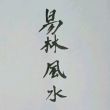 易林風水